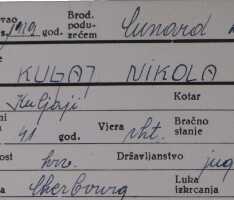 vao Brod.
1919 god. poduzećem Cunard
KUGAT NIKOLA
Kuljaji Kotar
41 god. Vjera rkt. Bračno stanje
ost hrv. Državljanstvo jug
a Cherbourg Luka izkrcanja